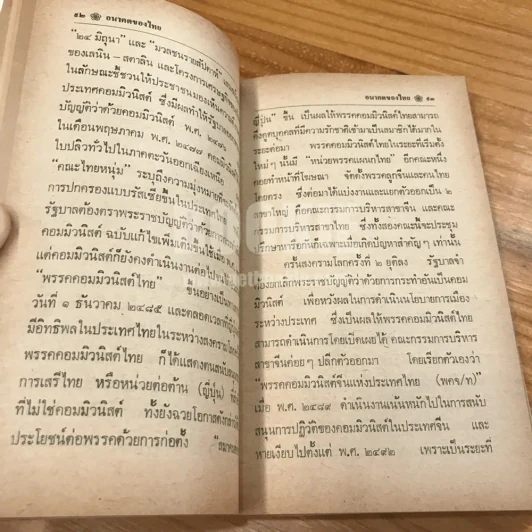 ๕๒ อนาคตของไทย
"๒๔ มิถุนา" และ "มวลชนรายสัปดาห์"
ของเลนิน – สตาลิน และโครงการเศรษฐกิจ
ในลักษณะชี้ชวนให้ประชาชนมองเห็นความ
ประเทศคอมมิวนิสต์ ซึ่งมีผลทำให้รัฐบาล
บัญญัติว่าด้วยคอมมิวนิสต์ พ.ศ. ๒๔๗๖
ในเดือนพฤษภาคม พ.ศ. ๒๔๗๗ คอมมิวนิสต์
ใบปลิวทั่วไปในภาคตะวันออกเฉียงเหนือ
"คณะไทยหนุ่ม" ระบุถึงความมุ่งหมายที่จะ
การปกครองแบบรัสเซียขึ้นในประเทศไทย
รัฐบาลต้องตราพระราชบัญญัติว่าด้วย
คอมมิวนิสต์ ฉบับแก้ไขเพิ่มเติมขึ้นใช้เมื่อ
แต่คอมมิวนิสต์ก็ยังคงดำเนินงานต่อไป
"พรรคคอมมิวนิสต์ไทย" ขึ้นอย่างเป็นทาง
วันที่ ๑ ธันวาคม ๒๔๘๕ และตลอดเวลาที่
มีอิทธิพลในประเทศไทยในระหว่างสงคราม
พรรคคอมมิวนิสต์ไทย ก็ได้แสดงตนสนับสนุน
การเสรีไทย หรือหน่วยต่อต้าน (ญี่ปุ่น)
ที่ไม่ใช่คอมมิวนิสต์ ทั้งยังฉวยโอกาส
ประโยชน์ต่อพรรคด้วยการก่อตั้ง "สมาคม
อนาคตของไทย ๕๓
ญี่ปุ่น" ขึ้น เป็นผลให้พรรคคอมมิวนิสต์ไทยสามารถ
ดึงดูดบุคคลที่มีความรักชาติเข้ามาเป็นสมาชิกได้มากใน
ระยะต่อมา พรรคคอมมิวนิสต์ไทยในระยะที่เริ่มตั้ง
ใหม่ๆ นั้นมี "หน่วยพรรคแผนกไทย" อีกคณะหนึ่ง
คอยทำหน้าที่โฆษณา จัดตั้งพรรคลูกจีนและคนไทย
โดยตรง ซึ่งต่อมาได้แบ่งงานและแยกตัวออกเป็น ๒
สาขาใหญ่ คือคณะกรรมการบริหารสาขาจีน และคณะ
กรรมการบริหารสาขาไทย ซึ่งทั้งสองคณะนี้จะประชุม
ปรึกษาหารือกันก็เฉพาะเมื่อเกิดปัญหาสำคัญๆ เท่านั้น
ครั้นสงครามโลกครั้งที่ ๒ ยุติลง รัฐบาลจำ
ต้องยกเลิกพระราชบัญญัติว่าด้วยการกระทำอันเป็นคอม
มิวนิสต์ เพื่อหวังผลในการดำเนินนโยบายการเมือง
ระหว่างประเทศ ซึ่งเป็นผลให้พรรคคอมมิวนิสต์ไทย
สามารถดำเนินการโดยเปิดเผยได้ คณะกรรมการบริหาร
สาขาจีนค่อยๆ ปลีกตัวออกมา โดยเรียกตัวเองว่า
"พรรคคอมมิวนิสต์จีนแห่งประเทศไทย (พคจ/ท)"
เมื่อ พ.ศ. ๒๔๘๙ ดำเนินงานเน้นหนักไปในการสนับ
สนุนการปฏิวัติของคอมมิวนิสต์ในประเทศจีน และ
หายเงียบไปตั้งแต่ พ.ศ. ๒๔๙๒ เพราะเป็นระยะที่